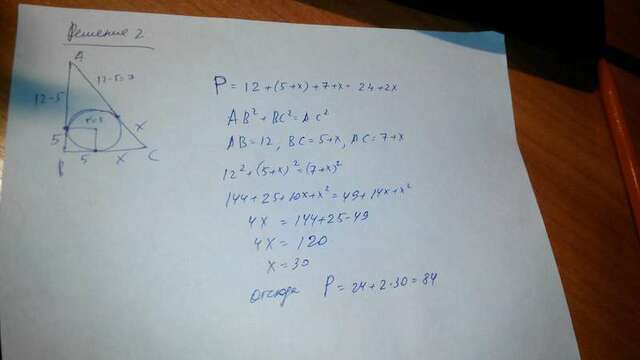 Решение 2
A
12-5=7
12-5
r=5
x
5
5
x
C
B
P = 12 + (5+x) + 7+x = 24+2x
AB² + BC² = AC²
AB = 12, BC = 5+x, AC = 7+x
12² + (5+x)² = (7+x)²
144 + 25 + 10x + x² = 49 + 14x + x²
4x = 144+25-49
4x = 120
x = 30
отсюда P = 24 + 2·30 = 84